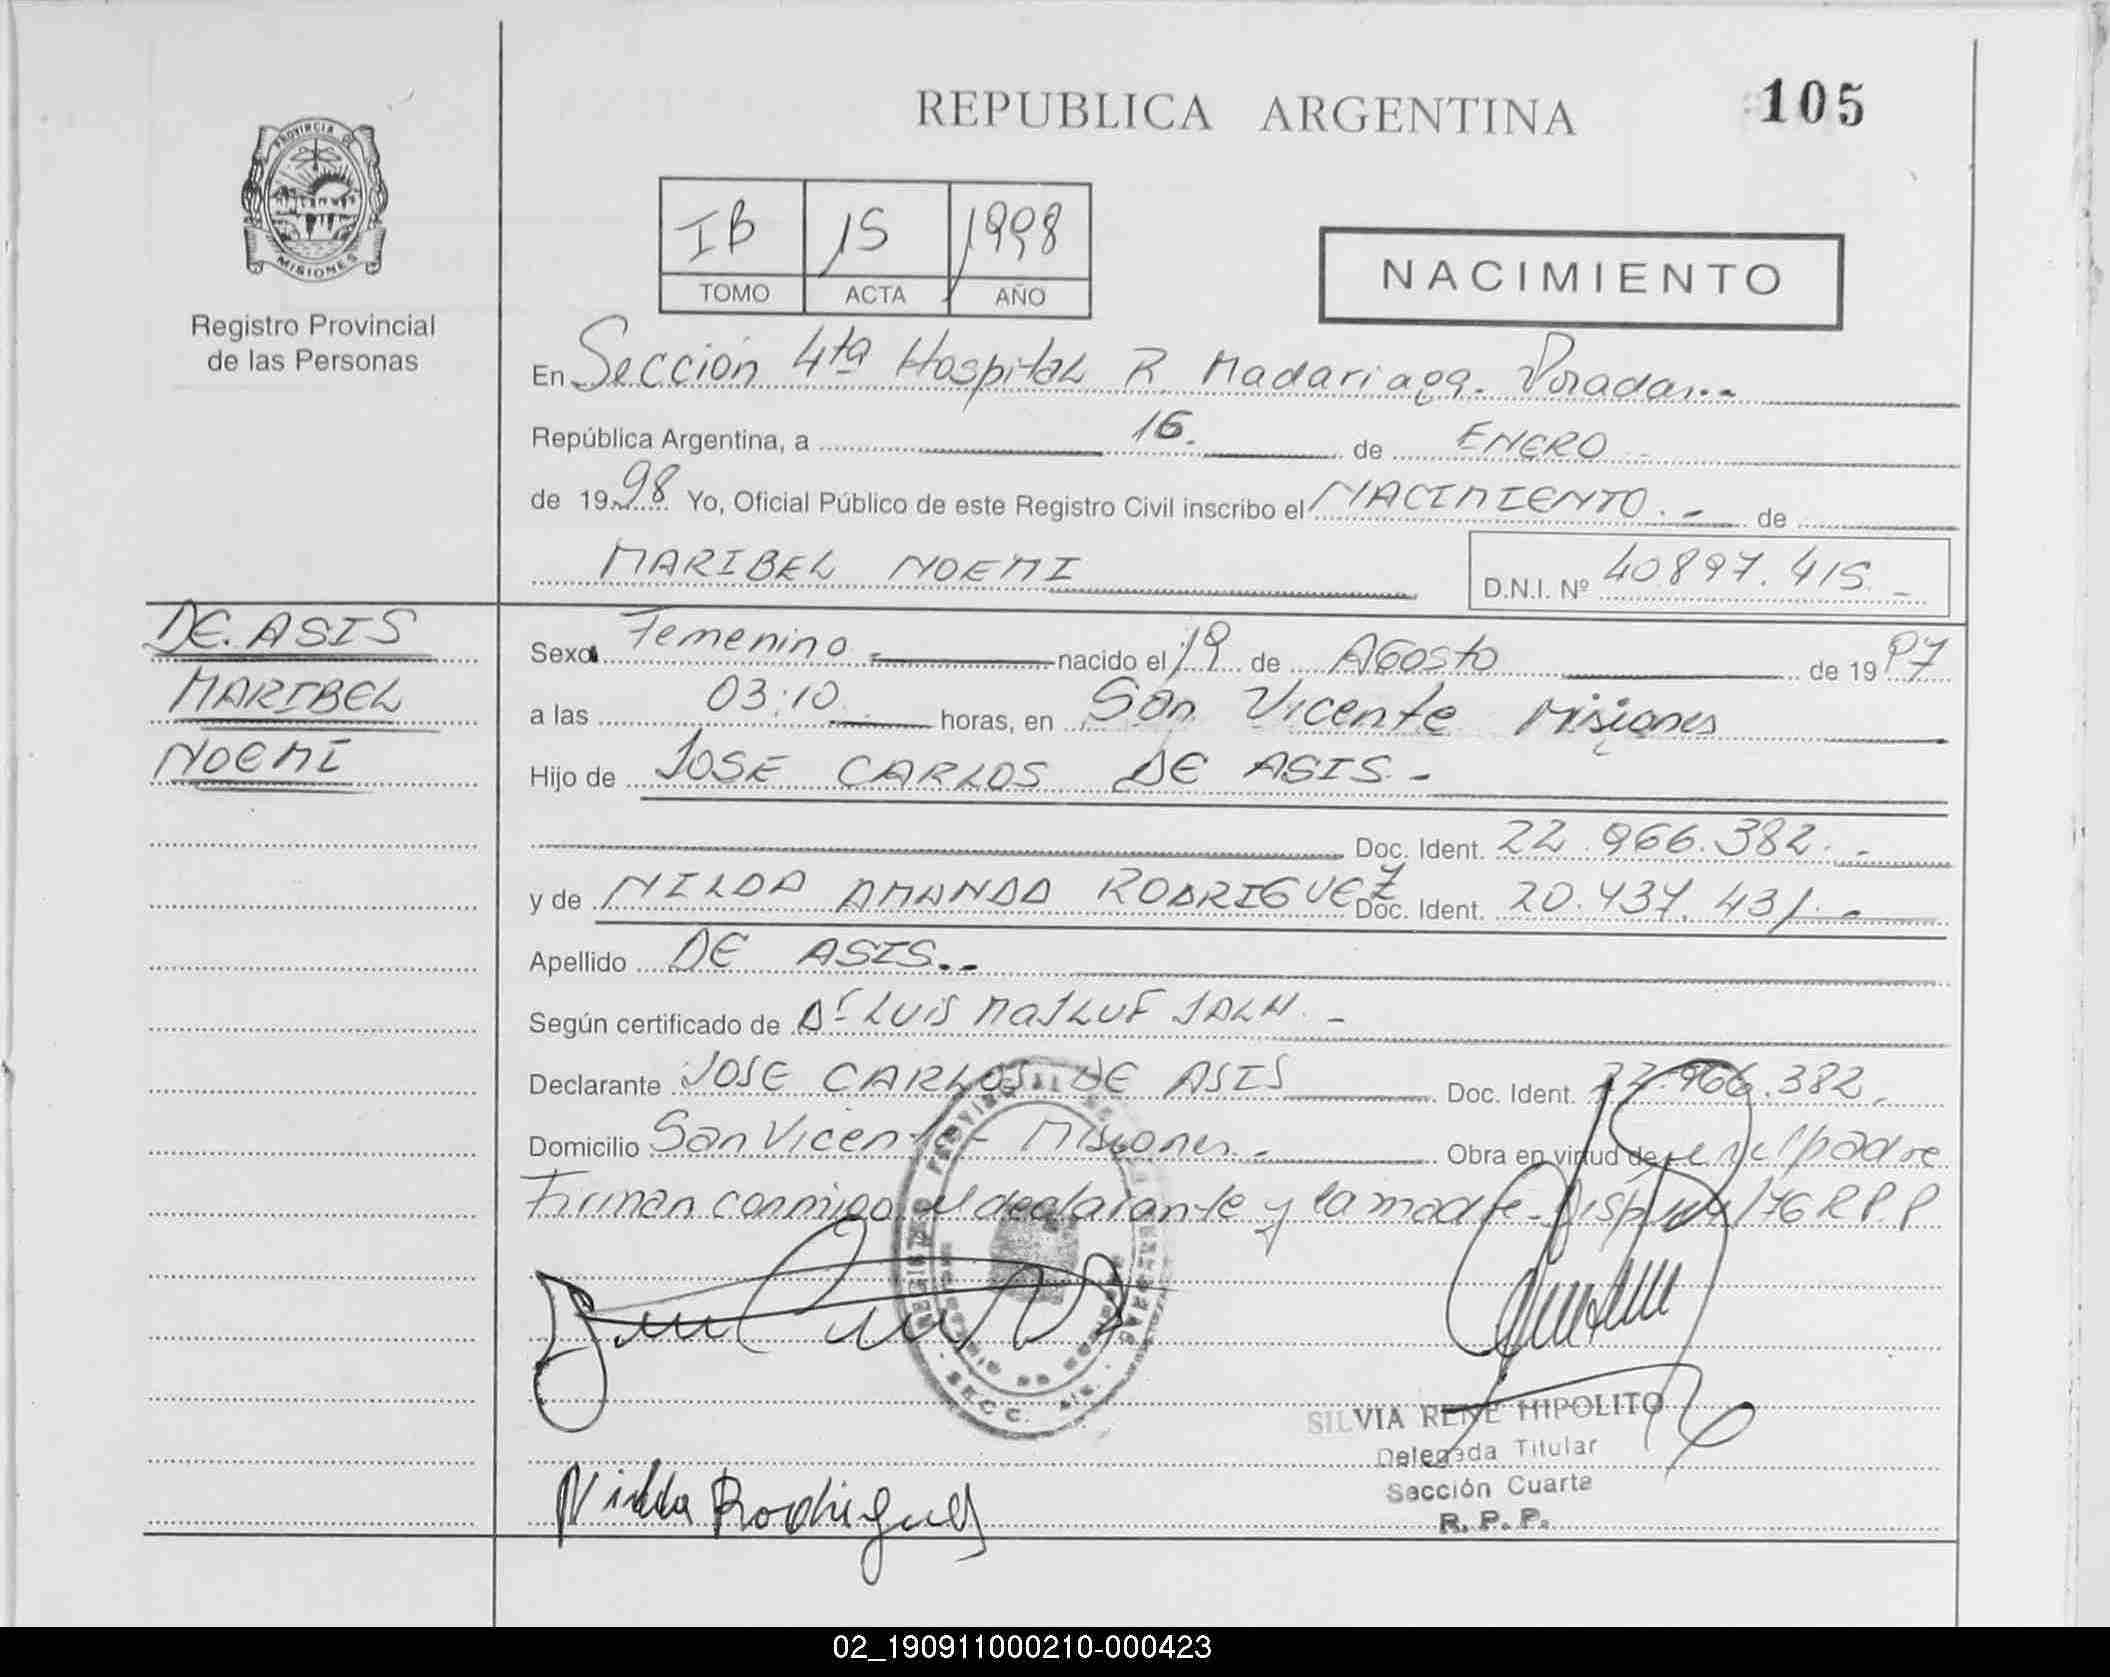 REPUBLICA ARGENTINA
105
PROVINCIA DE
MISIONES
Registro Provincial
de las Personas
IB 15 1998
TOMO ACTA AÑO
NACIMIENTO
En Sección 4ta Hospital R. Madariaga. Posadas.-
República Argentina, a 16. de ENERO
de 1998 Yo, Oficial Público de este Registro Civil inscribo el NACIMIENTO.- de
MARIBEL NOEMI D.N.I. Nº 40897.415.-
DE ASIS
MARIBEL
NOEMÍ
Sexo Femenino.- nacido el 19 de Agosto de 1997
a las 03:10 horas, en San Vicente Misiones
Hijo de JOSE CARLOS DE ASIS.-
Doc. Ident. 22.966.382.-
y de NILDA AMANDA RODRIGUEZ Doc. Ident. 20.437.431.-
Apellido DE ASIS.-
Según certificado de Dr LUIS
Declarante JOSE CARLOS DE ASIS Doc. Ident. 22.966.382.
Domicilio San Vicente - Misiones.- Obra en virtud de ser el padre
Firman conmigo el declarante y la madre. R.P.P
Nilda Rodriguez
SILVIA RENE HIPOLITO
Delegada Titular
Sección Cuarta
R. P. P.
02_190911000210-000423